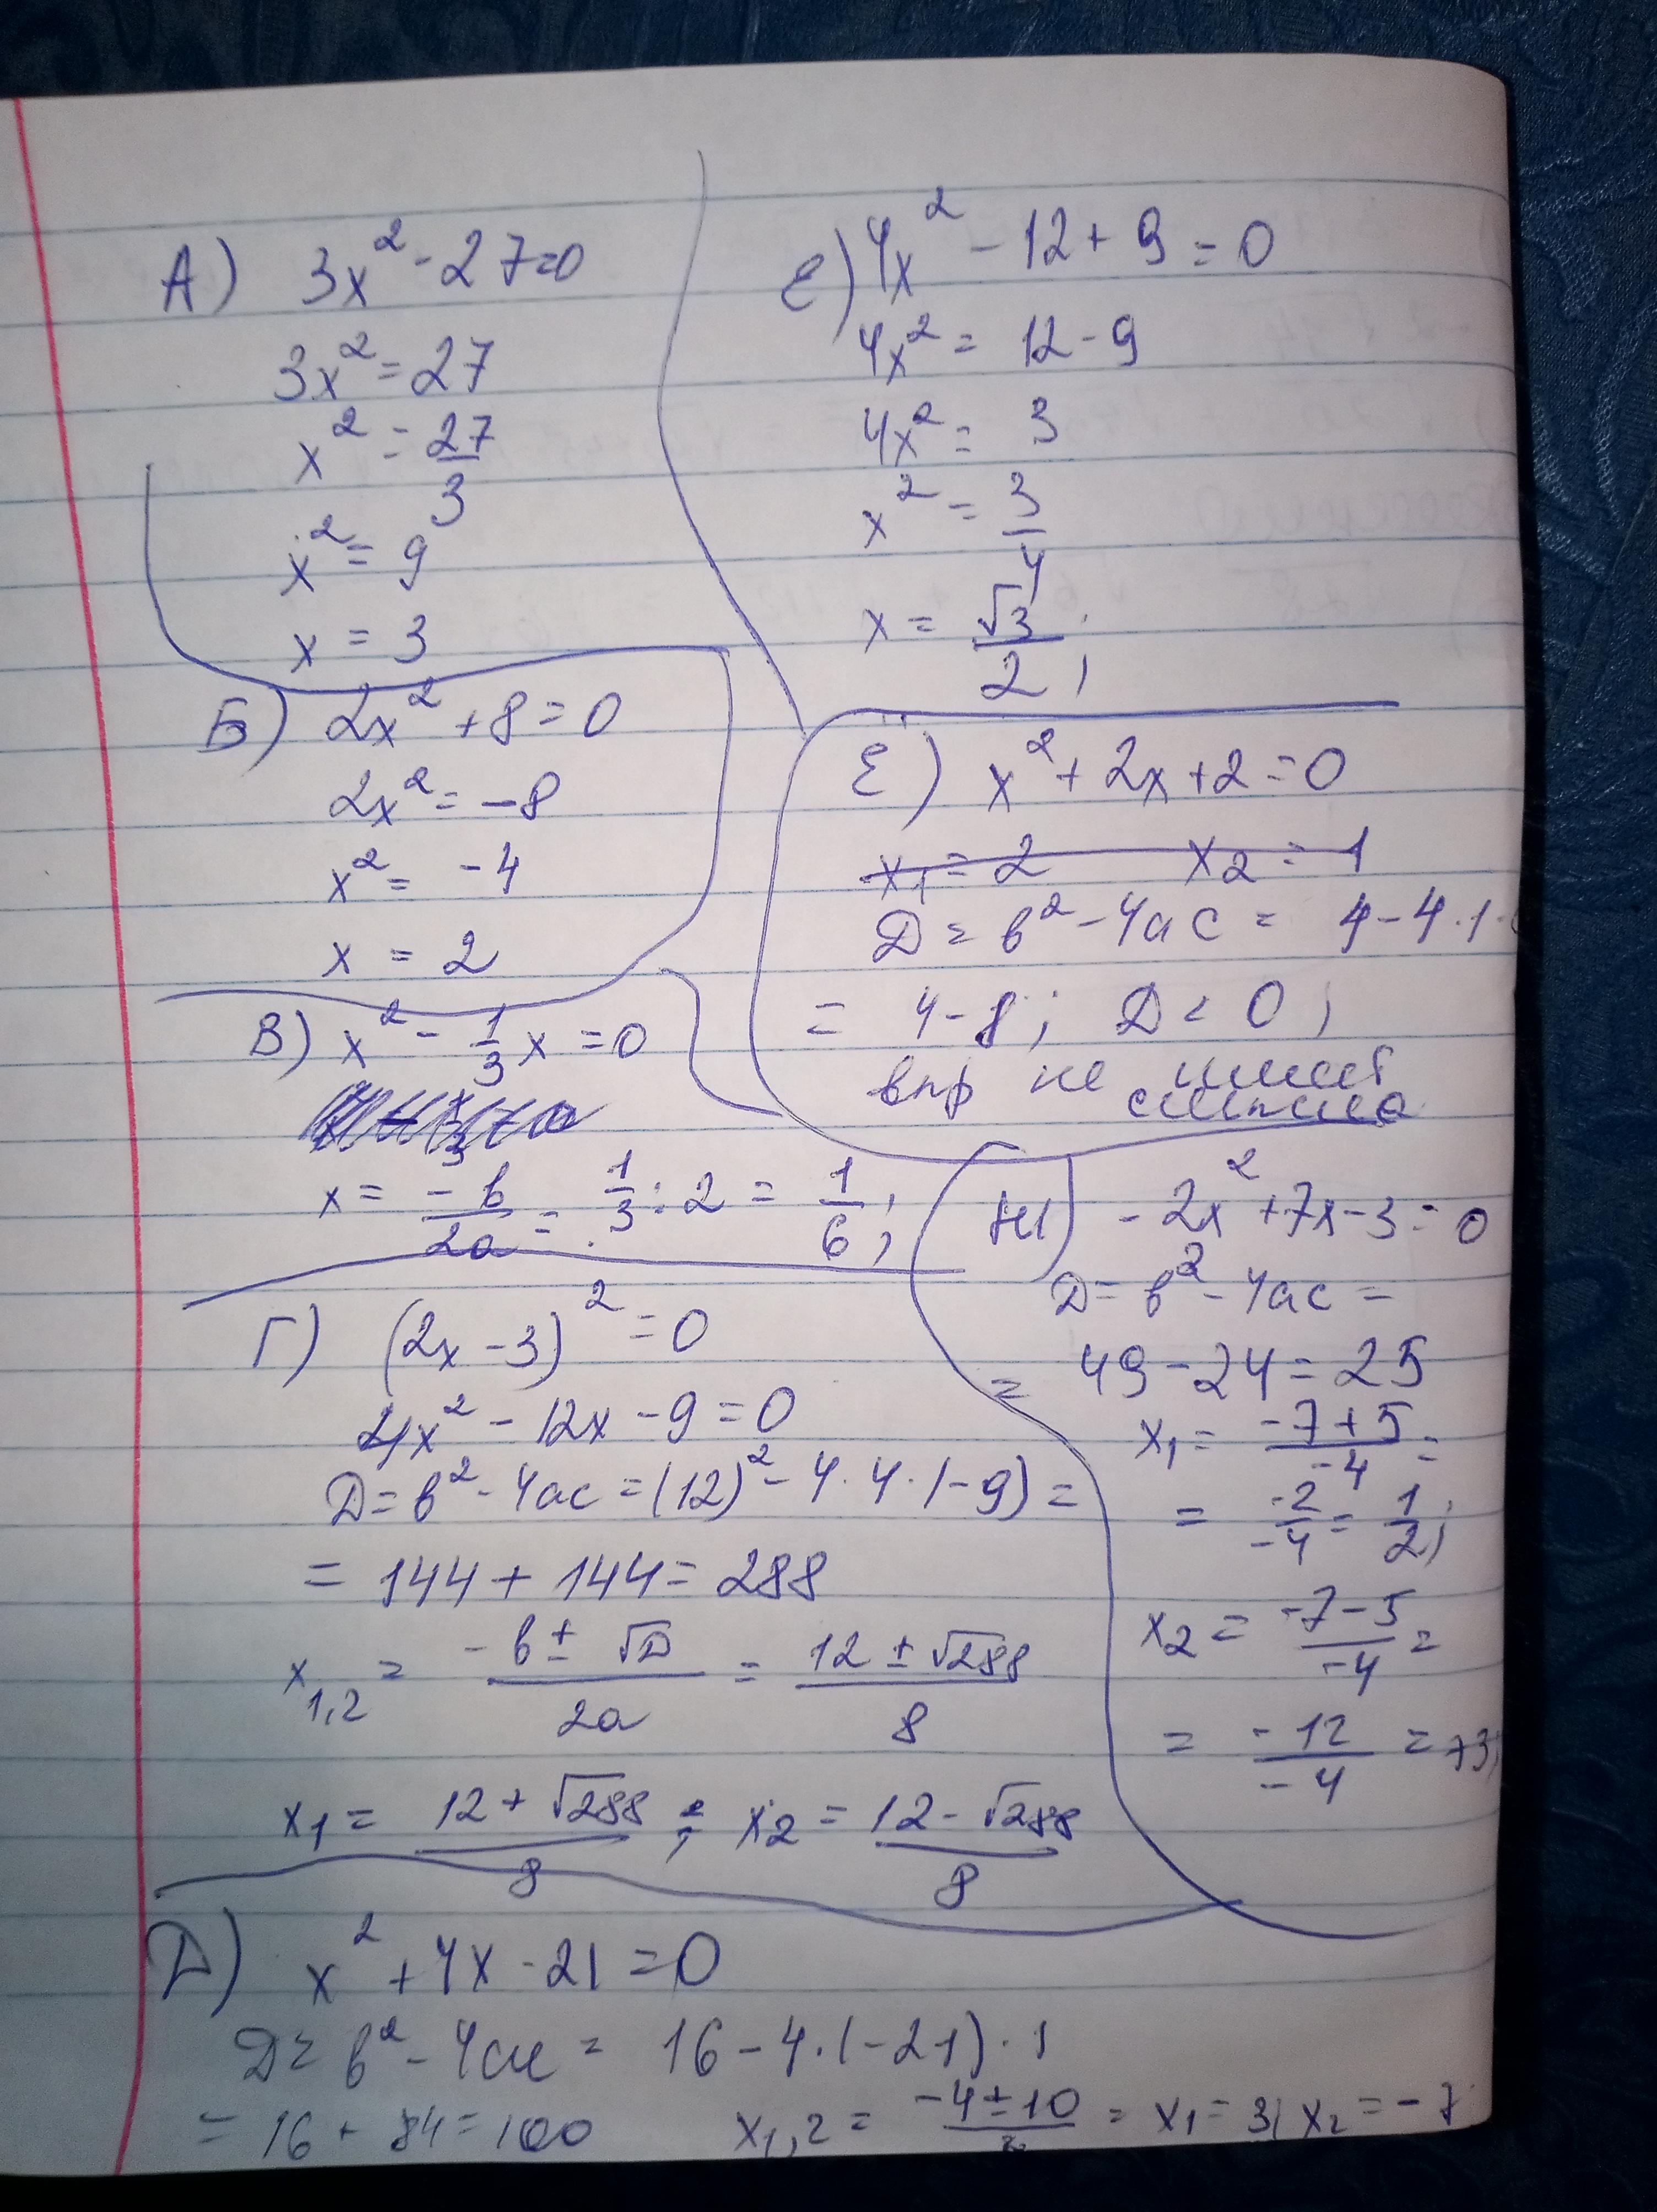 А) 3x² - 27=0
3x² = 27
x² = 27/3
x² = 9
x = 3
Б) 2x² + 8 = 0
2x² = -8
x² = -4
x = 2
В) x² - 1/3 x = 0
x = -b/2a = 1/3 : 2 = 1/6;
Г) (2x - 3)² = 0
4x² - 12x - 9 = 0
Д = b² - 4ac = (12)² - 4·4·(-9) =
= 144 + 144 = 288
x1,2 = (-b ± √D)/2a = (12 ± √288)/8
x1 = (12 + √288)/8 ; x2 = (12 - √288)/8
Д) x² + 4x - 21 = 0
Д = b² - 4ac = 16 - 4·(-21)·1
= 16 + 84 = 100 x1,2 = (-4 ± 10)/2 = x1 = 3; x2 = -7
Е) 4x² - 12 + 9 = 0
4x² = 12 - 9
4x² = 3
x² = 3/4
x = √3/2;
Ё) x² + 2x + 2 = 0
x1 = 2 x2 = 1
Д = b² - 4ac = 4 - 4·1·
= 4 - 8; Д < 0;
впр не имеет
смысла
Ж) -2x² + 7x - 3 = 0
Д = b² - 4ac =
= 49 - 24 = 25
x1 = (-7 + 5)/-4 =
= -2/-4 = 1/2;
x2 = (-7 - 5)/-4 =
= -12/-4 = +3;